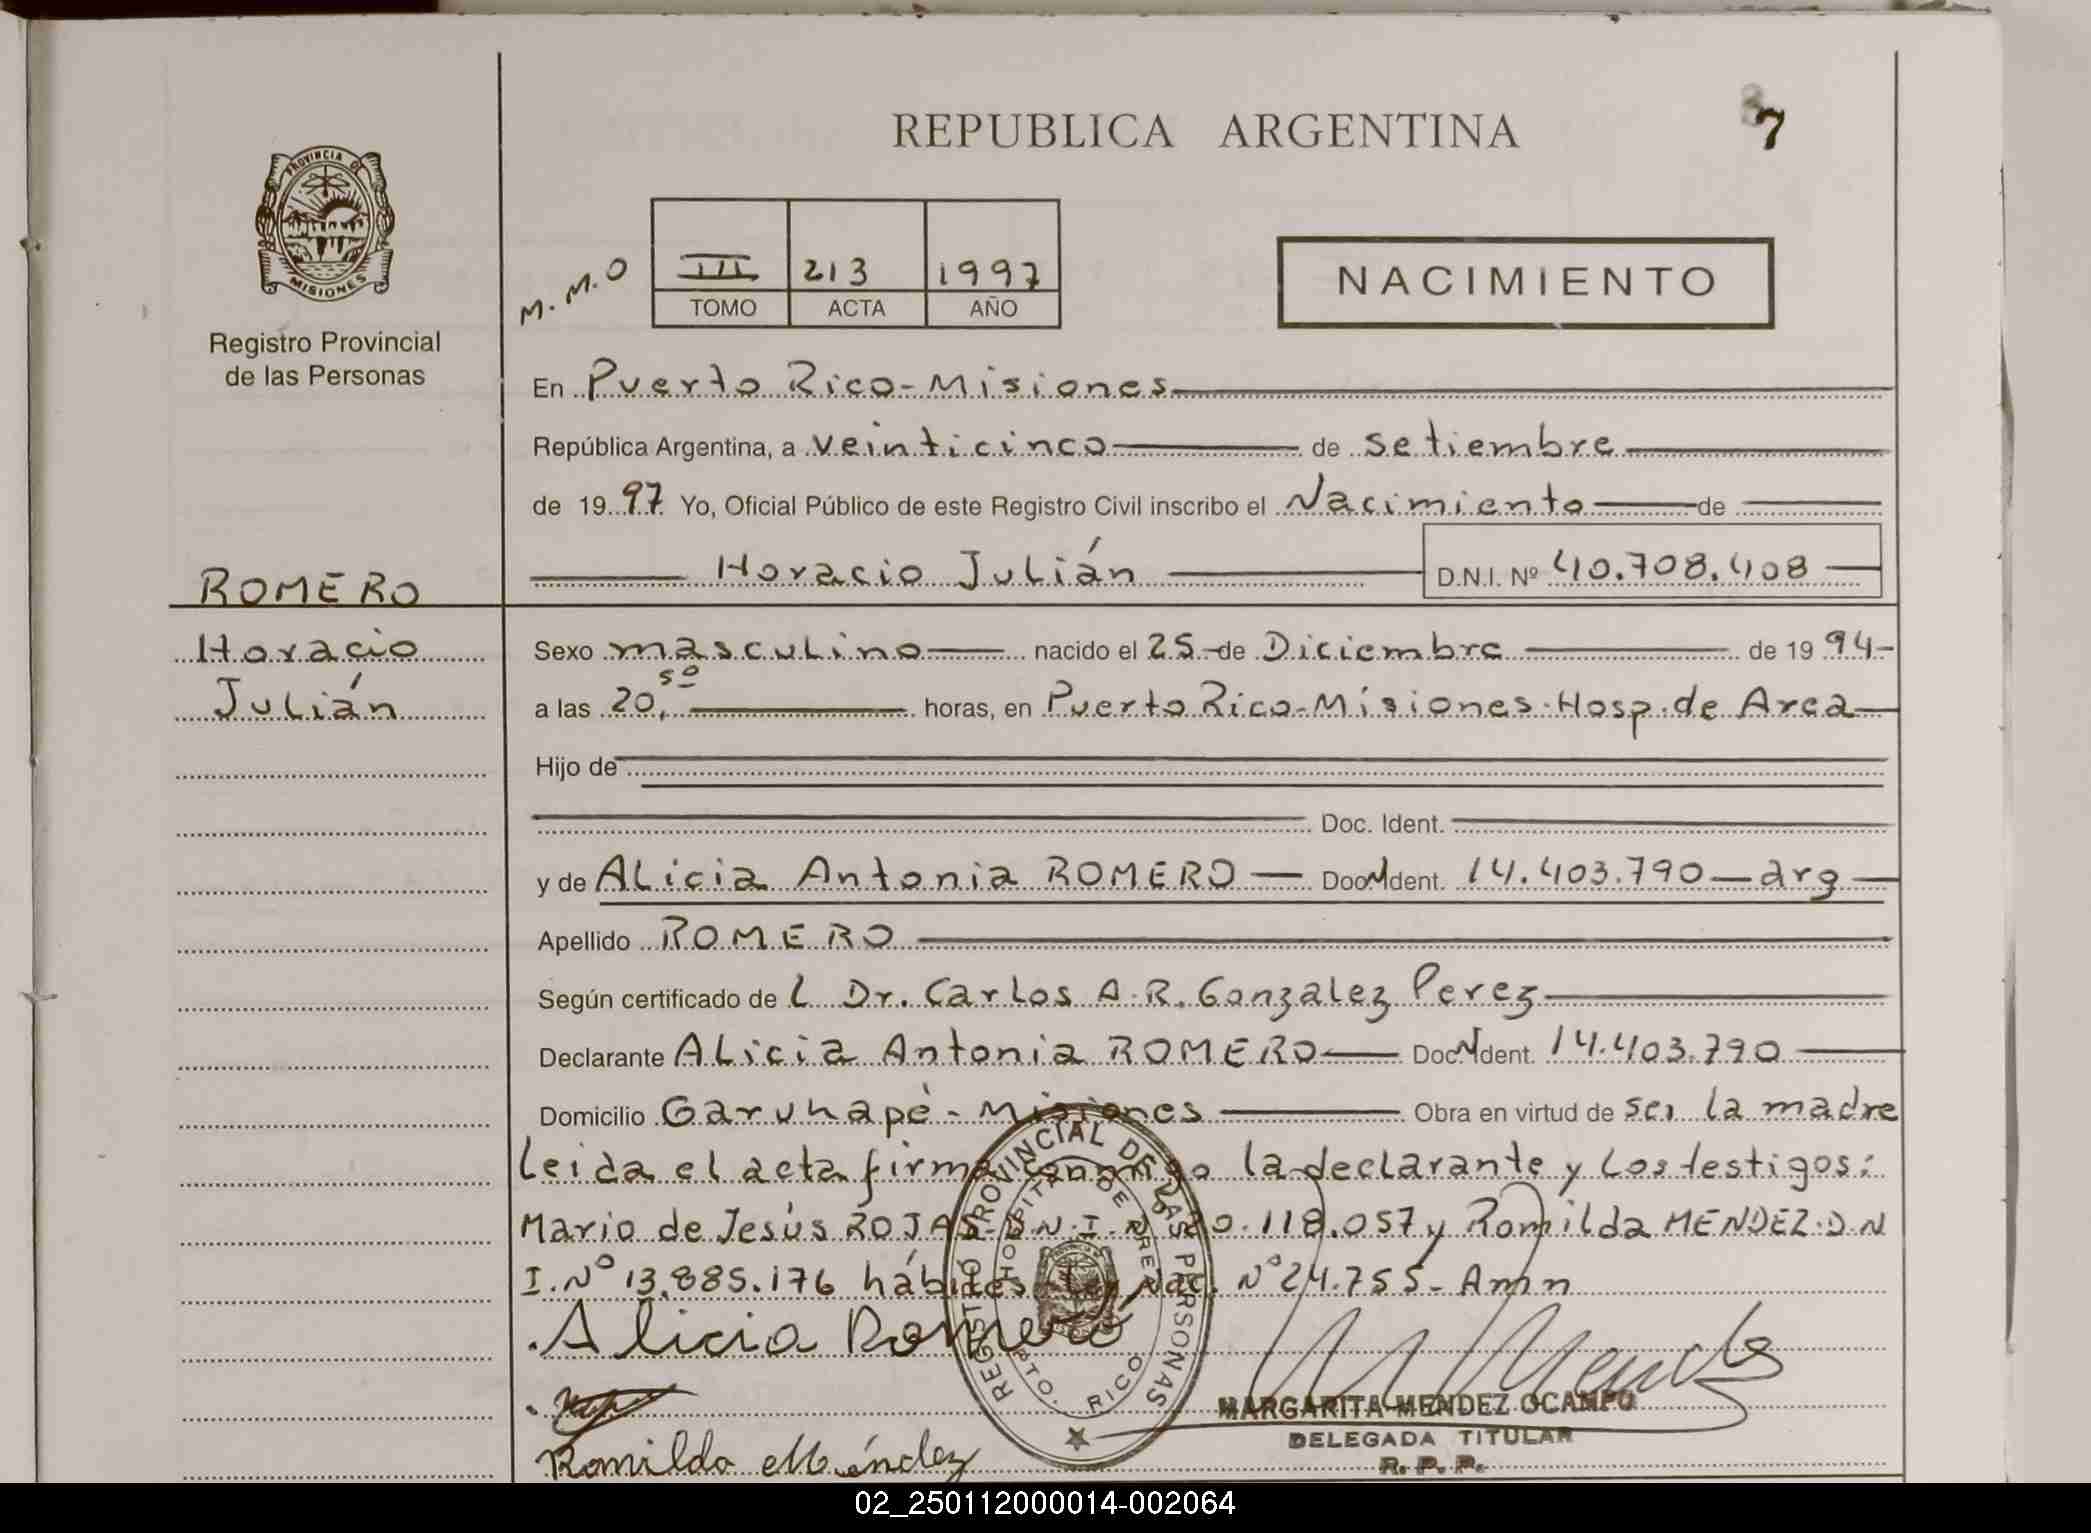 REPUBLICA ARGENTINA
7
PROVINCIA DE
MISIONES
Registro Provincial
de las Personas
M. M. O
III 213 1997
TOMO ACTA AÑO
NACIMIENTO
En Puerto Rico - Misiones
República Argentina, a veinticinco de setiembre
de 19 97 Yo, Oficial Público de este Registro Civil inscribo el Nacimiento de
Horacio Julián D.N.I. Nº 40.708.408
ROMERO
Horacio
Julián
Sexo masculino nacido el 25 de Diciembre de 19 94-
a las 20,50 horas, en Puerto Rico - Misiones - Hosp. de Area
Hijo de
Doc. Ident.
y de Alicia Antonia ROMERO Doc. Ident. 14.403.790 - arg
Apellido ROMERO
Según certificado de L Dr. Carlos A. R. Gonzalez Perez
Declarante Alicia Antonia ROMERO Doc. Ident. 14.403.790
Domicilio Garuhapé - Misiones Obra en virtud de ser la madre
Leida el acta firma conmigo la declarante y los testigos:
Mario de Jesús ROJAS D.N.I. Nº 20.118.057 y Romilda MENDEZ D.N
I. Nº 13.885.176 hábiles Ley Nac. Nº 24.755 - Amn
Alicia Romero
Romilda Méndez
REGISTRO PROVINCIAL DE LAS PERSONAS
HOSPITAL DE AREA
PTO. RICO
MARGARITA MENDEZ OCAMPO
DELEGADA TITULAR
R. P. P.
02_250112000014-002064